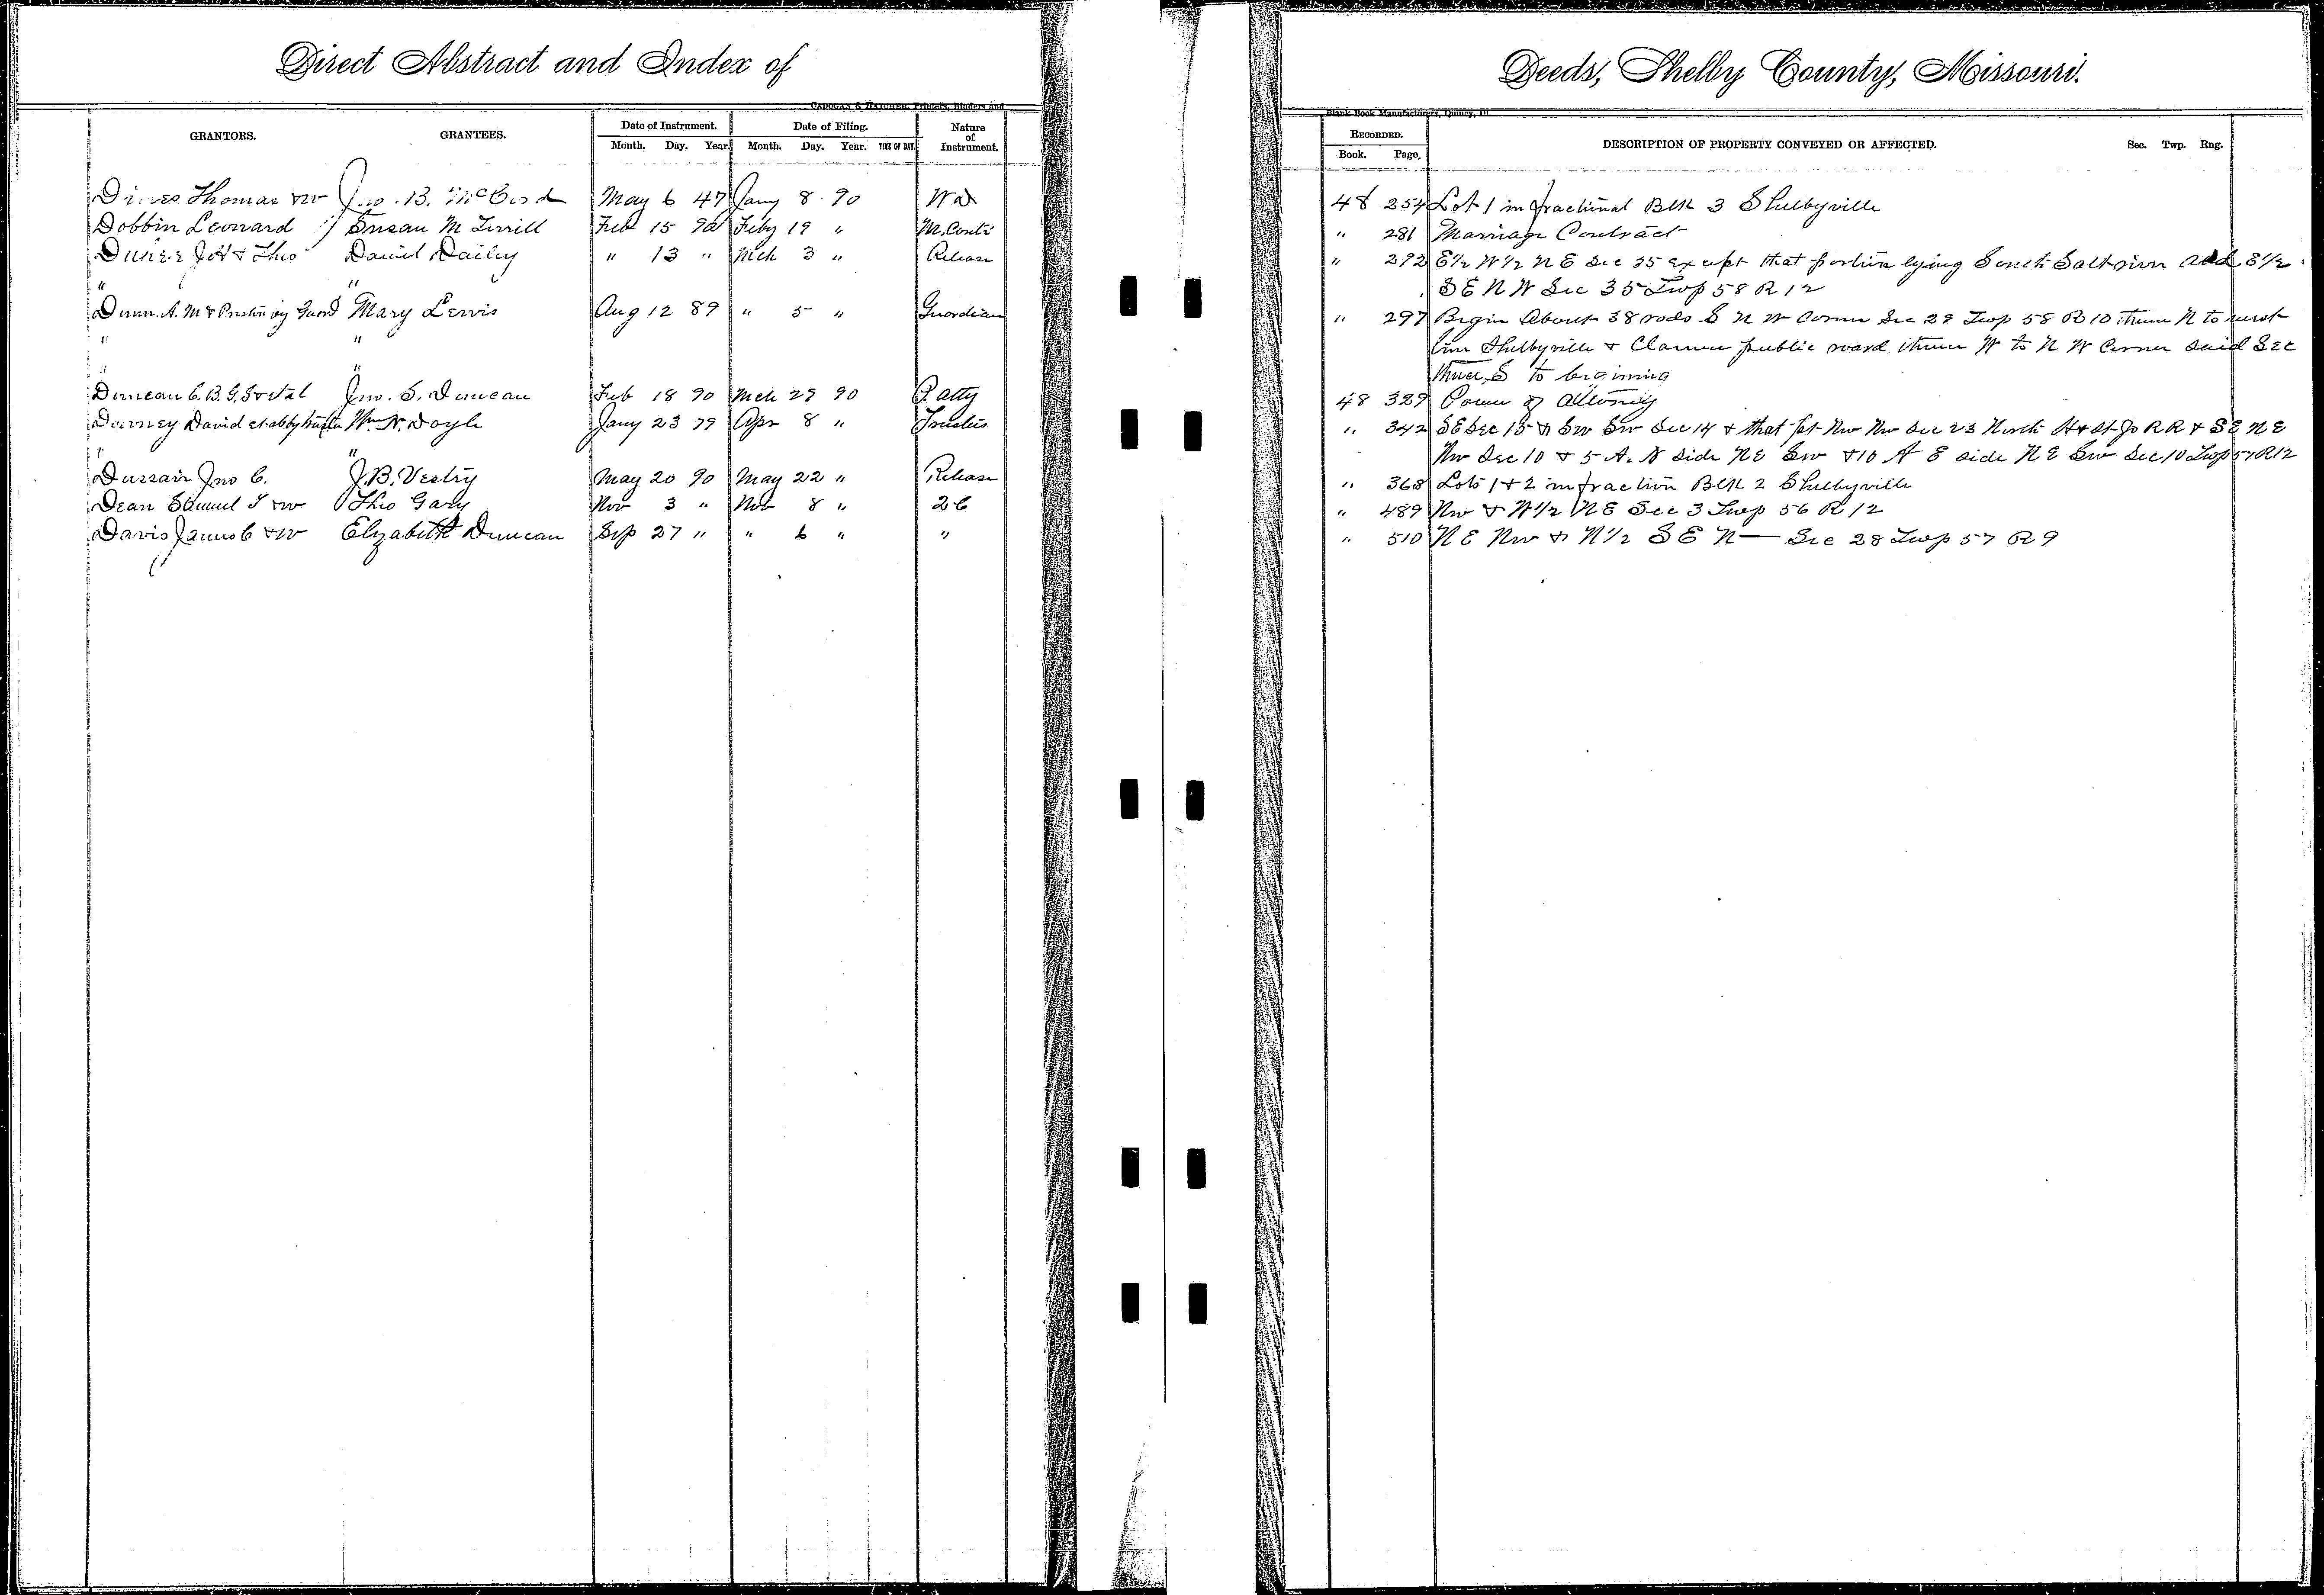 Direct Abstract and Index of
Deeds, Shelby County, Missouri.
CADOGAN & HATCHER, Printers, Binders and
Blank Book Manufacturers, Quincy, Ill.
GRANTORS. GRANTEES. Date of Instrument. Date of Filing. Nature of Instrument.
Month. Day. Year. Month. Day. Year. TIME OF DAY.
RECORDED. DESCRIPTION OF PROPERTY CONVEYED OR AFFECTED. Sec. Twp. Rng.
Book. Page.
Thomas & w Jno. B. McCord May 6 47 Jany 8 90 W D 48 254 Lot 1 in fractional Blk 3 Shelbyville
Dobbin Leonard Susan M Feb 15 90 Feby 19 " M. Contr " 281 Marriage Contract
& Theo David Dailey " 13 " Mch 3 " Release " 292 E 1/2 W 1/2 N E Sec 35 except that portion lying South Salt river And E 1/2
" " S E N W Sec 35 Twp 58 R 12
Dunn. A. M & by Guard Mary Lewis Aug 12 89 " 5 " Guardian " 297 Begin About 38 rods S N W Corner Sec 29 Twp 58 R 10 thence N to
" " line Shelbyville & Clarence public road thence W to N W Corner said Sec
" " thence S to begining
Duncan C. B. G. S & et al Jno. S. Duncan Feb 18 90 Mch 29 90 P. atty 48 329 Power of Attorney
David et al by trustee Wm N. Doyle Jany 23 79 Apr 8 " Trustees " 342 SE Sec 15 & Sw Sw Sec 14 & that pt Nw Nw Sec 23 North H & St Jo R R & S E N E
" " Nw Sec 10 & 5 A. N side N E Sw & 10 A E side N E Sw Sec 10 Twp 57 R 12
Jno C. J. B. Vestry May 20 90 May 22 " Release " 368 Lots 1 & 2 in fraction Blk 2 Shelbyville
Dean Samuel T & w Theo Gary Nov 3 " Nov 8 " 2 C " 489 Nw & W 1/2 N E Sec 3 Twp 56 R 12
Davis James C & W Elizabeth Duncan Sep 27 " " 6 " " " 510 N E Nw & N 1/2 S E N — Sec 28 Twp 57 R 9